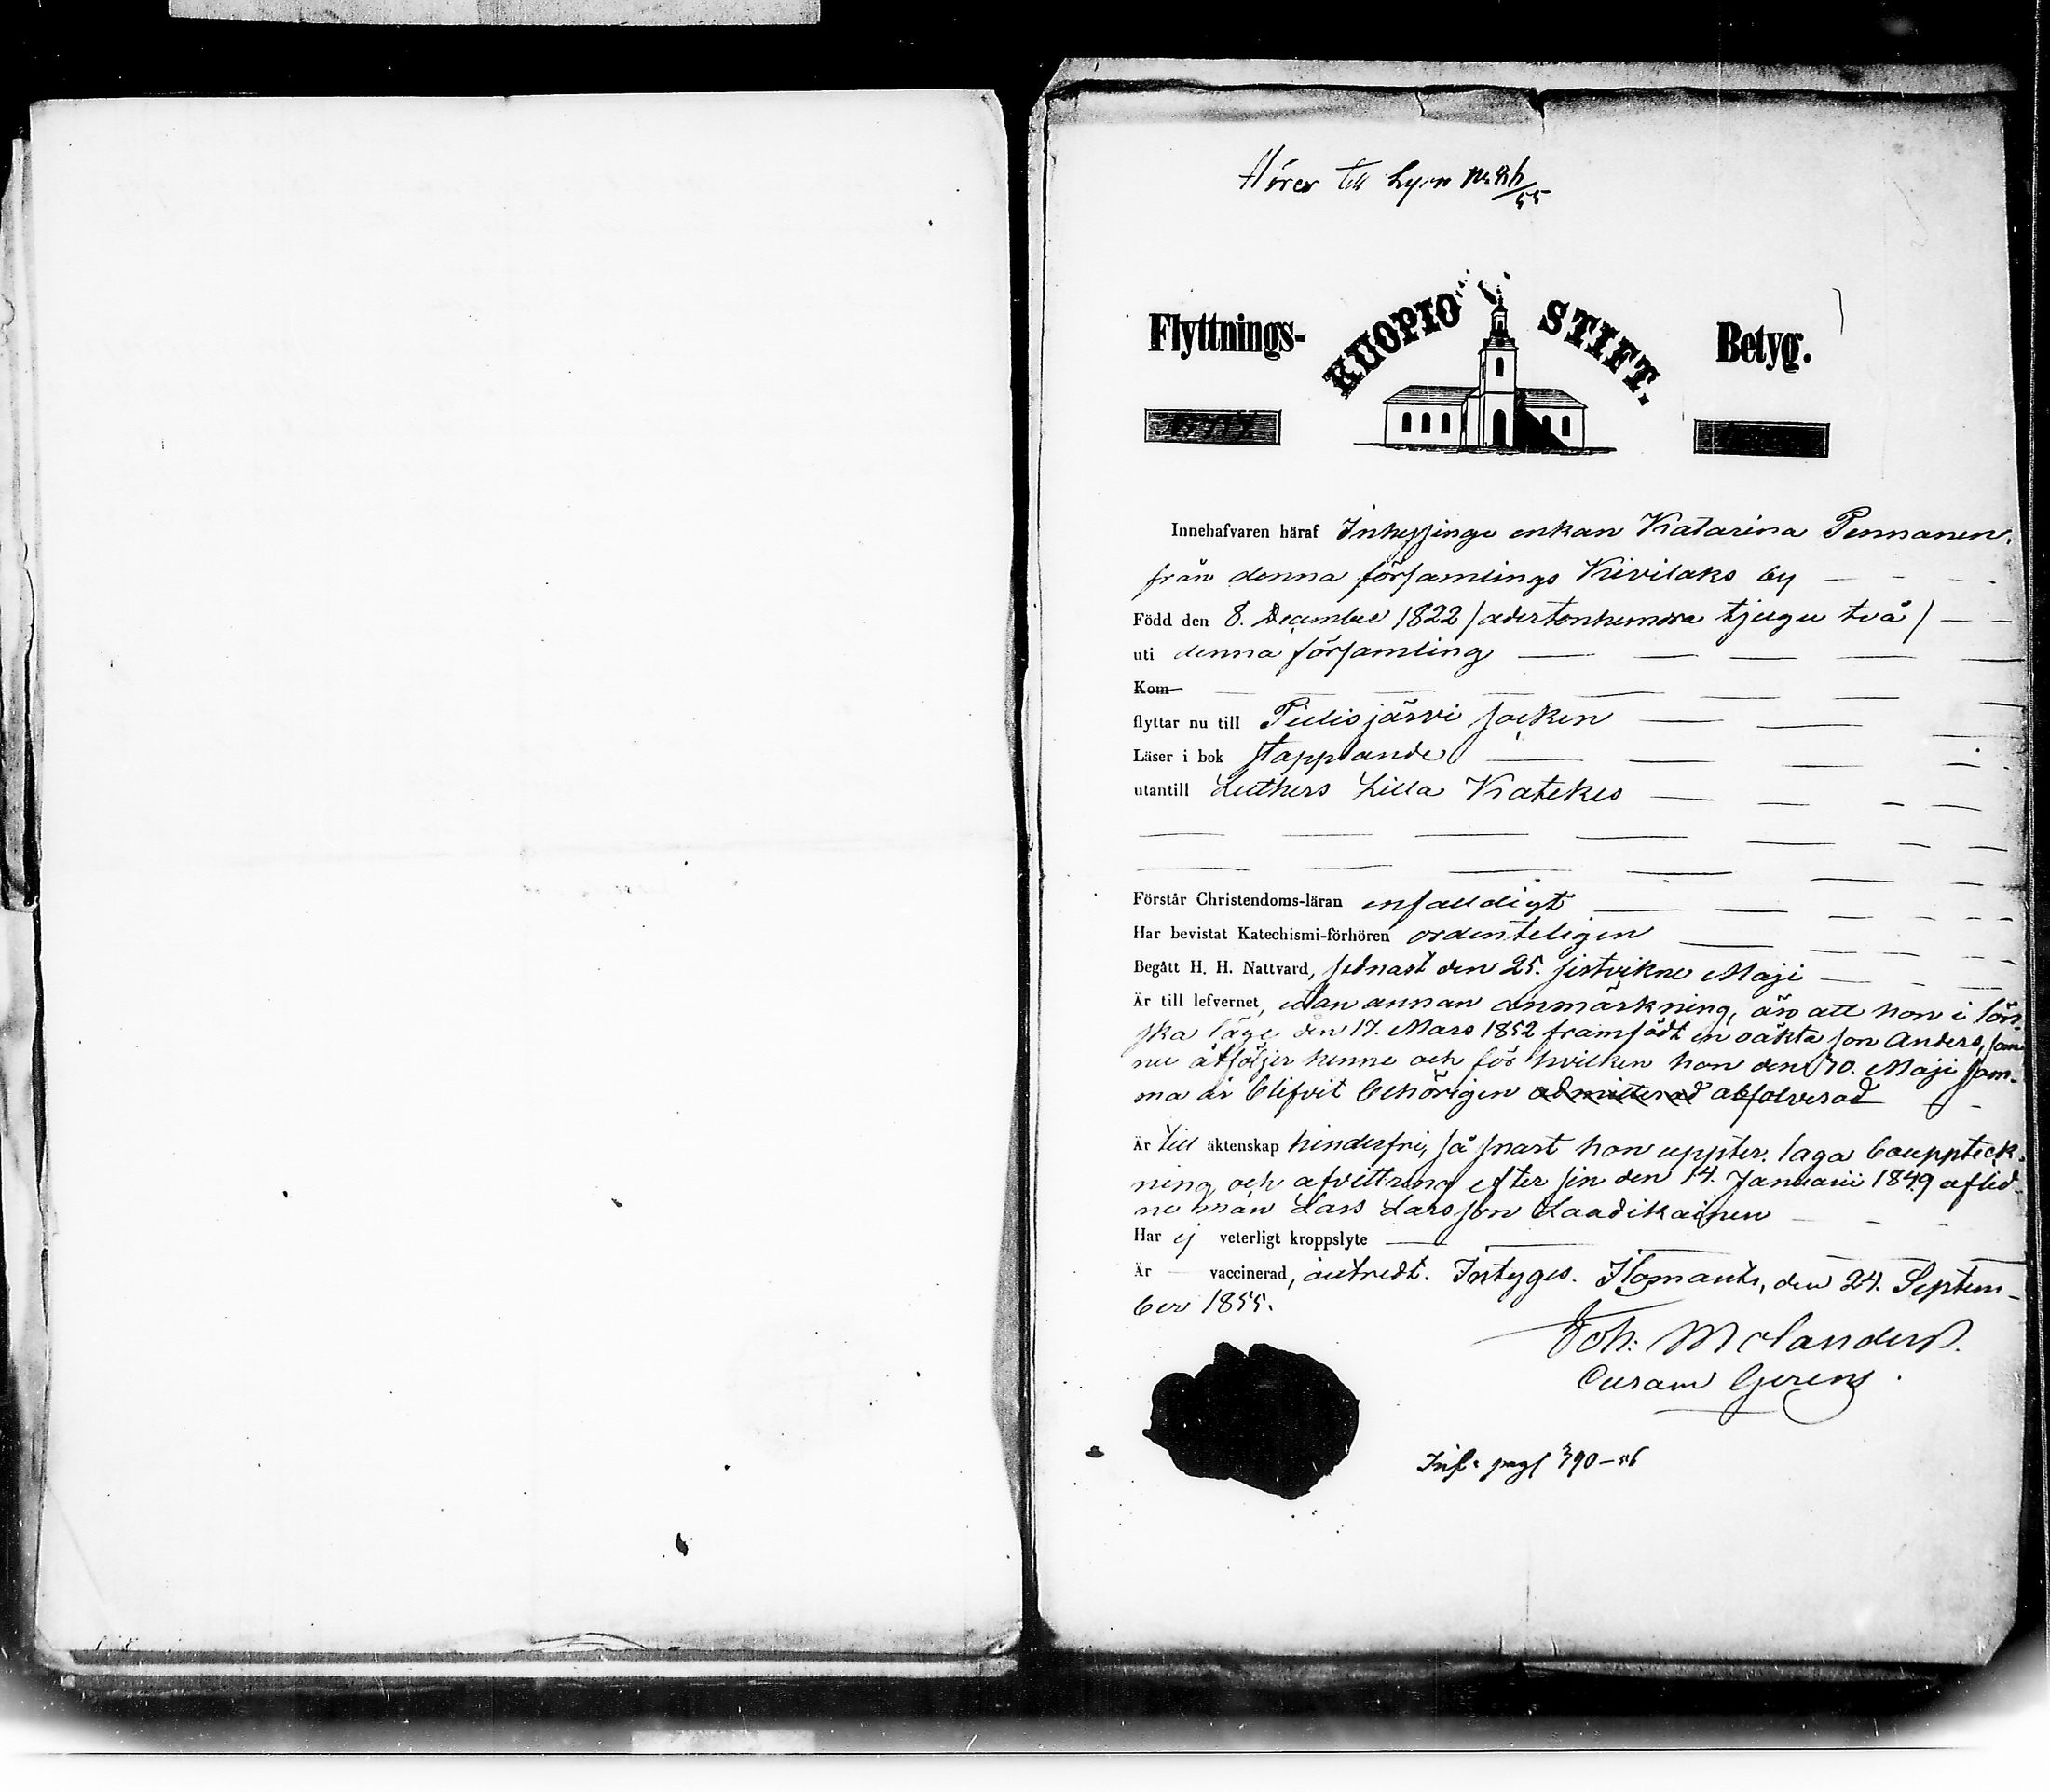 Hörer till
Flyttnings- KUOPIO STIFT. Betyg.
Innehafvaren häraf Inhysinge enkan Katarina Pennanen,
från denna församlings Kivilaks by
Född den 8. December 1822 /adertonhundra tjugu två/
uti denna församling
Kom
flyttar nu till Pielisjärvi socken
Läser i bok stapplande
utantill Luthers Lilla Katekes
Förstår Christendoms-läran enfalldigt
Har bevistat Katechismi-förhören ordenteligen
Begått H. H. Nattvard, sednast den 25. sistvikne Maji
Är till lefvernet, utan annan anmärkning, än att hon i lön-
ska läge den 17. Mars 1852 framfödt en oäkta son Anders, som
nu åtföljer henne och för hvilken hon den 30. Maji sam-
ma år blifvit behörigen admitterad absolverad
Är till äktenskap hinderfri, så snart hon uppter. laga bouppteck-
ning och afvittring efter sin den 14. Januarii 1849 aflid-
ne man Lars Larsson Laadikainen
Har ej veterligt kroppslyte
Är vaccinerad, Intygas. Ilomants, den 24. Septem-
ber 1855.
Joh: Molander
Curam Gerens.
Infl: pag 390-